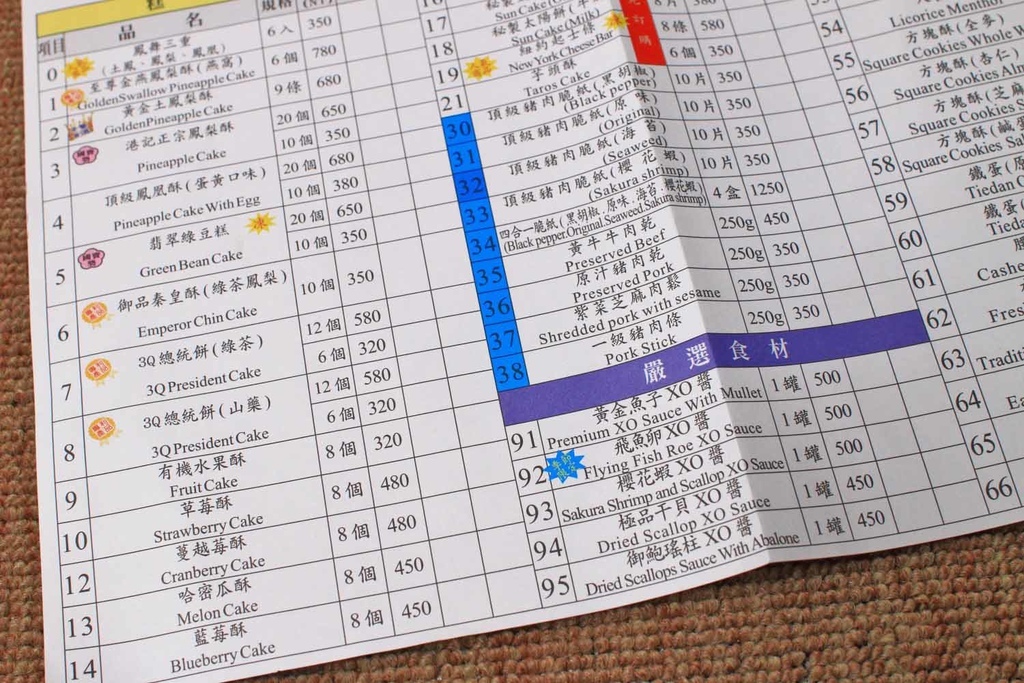 糕
項目 品名 規格
0 鳳舞三重 6入 350
(土鳳、鳳梨、鳳凰)
1 至尊金燕鳳梨酥(燕窩) 6個 780
GoldenSwallow Pineapple Cake
2 黃金土鳳梨酥 9條 680
GoldenPineapple Cake
3 港記正宗鳳梨酥 20個 650
Pineapple Cake 10個 350
4 頂級鳳凰酥(蛋黃口味) 20個 680
Pineapple Cake With Egg 10個 380
5 翡翠綠豆糕 20個 650
Green Bean Cake 10個 350
6 御品秦皇酥(綠茶鳳梨) 10個 350
Emperor Chin Cake
7 3Q總統餅(綠茶) 12個 580
3Q President Cake 6個 320
8 3Q總統餅(山藥) 12個 580
3Q President Cake 6個 320
9 有機水果酥 8個 320
Fruit Cake
10 草莓酥 8個 480
Strawberry Cake
12 蔓越莓酥 8個 480
Cranberry Cake
13 哈密瓜酥 8個 450
Melon Cake
14 藍莓酥 8個 450
Blueberry Cake
16
17 秘製
Sun Cake
18 秘製太陽餅(牛
Sun Cake(Milk) 380
19 紐約起士條 8條 580
New York Cheese Bar
21 芋頭酥 6個 350
Taros Cake
30 頂級豬肉脆紙(黑胡椒) 10片 350
(Black pepper)
31 頂級豬肉脆紙(原味) 10片 350
(Original)
32 頂級豬肉脆紙(海苔) 10片 350
(Seaweed)
33 頂級豬肉脆紙(櫻花蝦) 10片 350
(Sakura shrimp)
34 四合一脆紙(黑胡椒.原味.海苔.櫻花蝦) 4盒 1250
(Black pepper.Original.Seaweed.Sakura shrimp)
35 黃牛牛肉乾 250g 450
Preserved Beef
36 原汁豬肉乾 250g 350
Preserved Pork
37 紫菜芝麻肉鬆 250g 350
Shredded pork with sesame
38 一級豬肉條 250g 350
Pork Stick
嚴選食材
91 黃金魚子XO醬 1罐 500
Premium XO Sauce With Mullet
92 飛魚卵XO醬 1罐 500
Flying Fish Roe XO Sauce
93 櫻花蝦XO醬 1罐 500
Sakura Shrimp and Scallop XO Sauce
94 極品干貝XO醬 1罐 450
Dried Scallop XO Sauce
95 御鮑瑤柱XO醬 1罐 450
Dried Scallops Sauce With Abalone
訂購
54
Licorice Mentho
55 方塊酥(全麥)
Square Cookies Whole W
56 方塊酥(杏仁)
Square Cookies Alm
57 方塊酥(芝麻
Square Cookies S
58 方塊酥(鹹蛋
Square Cookies Sal
59 鐵蛋(原
Tiedan C
60 鐵蛋(
Tieda
61
Cashe
62
Fres
63
Tradit
64
Ea
65
66